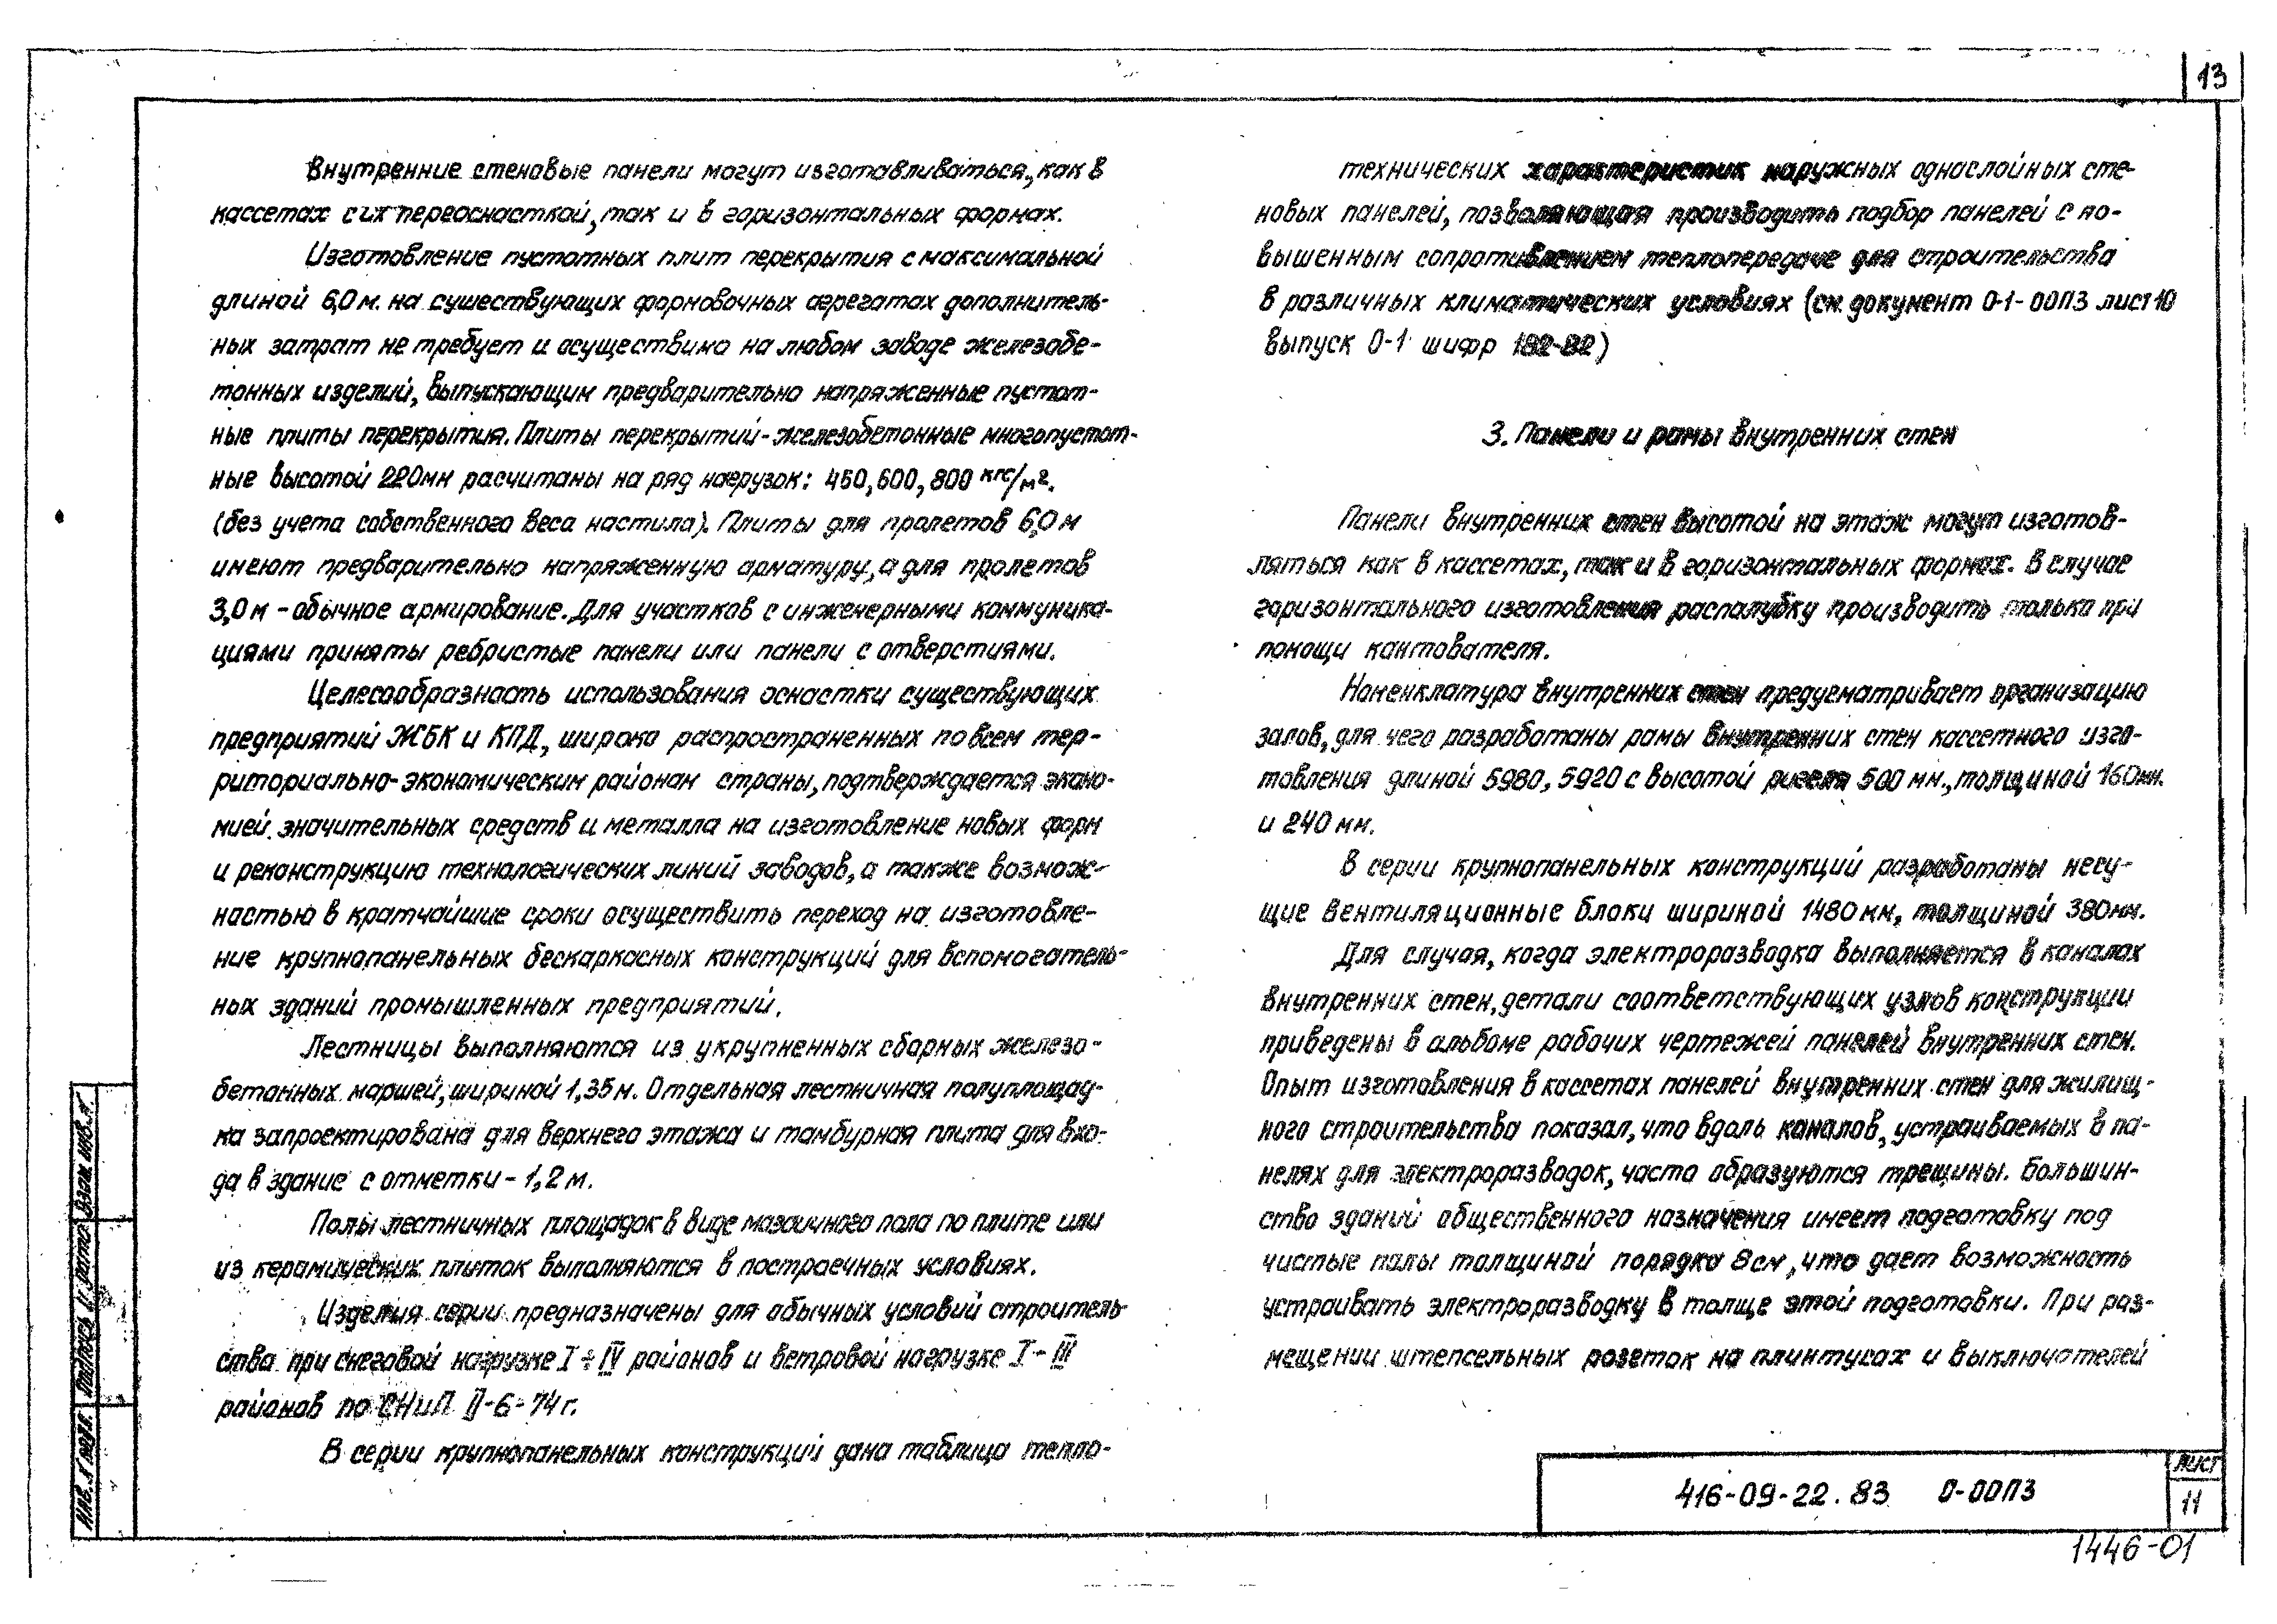 13
Внутренние стеновые панели могут изготавливаться, как в
кассетах с их переоснасткой, так и в горизонтальных формах.
Изготовление пустотных плит перекрытия с максимальной
длиной 6,0 м. на существующих формовочных агрегатах дополнитель-
ных затрат не требует и осуществимо на любом заводе железобе-
тонных изделий, выпускающим предварительно напряженные пустот-
ные плиты перекрытия. Плиты перекрытий-железобетонные многопустот-
ные высотой 220мм расчитаны на ряд нагрузок: 450, 600, 800 кгс/м².
(без учета собственного веса настила). Плиты для пролетов 6,0 м
имеют предварительно напряженную арматуру, а для пролетов
3,0 м - обычное армирование. Для участков с инженерными коммуника-
циями приняты ребристые панели или панели с отверстиями.
Целесообразность использования оснастки существующих
предприятий ЖБК и КПД, широко распространенных по всем тер-
риториально-экономическим районам страны, подтверждается эконо-
мией значительных средств и металла на изготовление новых форм
и реконструкцию технологических линий заводов, а также возмож-
ностью в кратчайшие сроки осуществить переход на изготовле-
ние крупнопанельных бескаркасных конструкций для вспомогатель-
ных зданий промышленных предприятий.
Лестницы выполняются из укрупненных сборных железо-
бетонных маршей, шириной 1,35 м. Отдельная лестничная полуплощад-
ка запроектирована для верхнего этажа и тамбурная плита для вхо-
да в здание с отметки - 1,2 м.
Полы лестничных площадок в виде мозаичного пола по плите или
из керамических плиток выполняются в построечных условиях.
Изделия серии предназначены для обычных условий строитель-
ства при снеговой нагрузке I ÷ IV районов и ветровой нагрузке I - III
районов по СНиП II-6-74 г.
В серии крупнопанельных конструкций дана таблица тепло-
технических характеристик наружных однослойных сте-
новых панелей, позволяющая производить подбор панелей с по-
вышенным сопротивлением теплопередаче для строительства
в различных климатических условиях (см. документ 0-1-00ПЗ лист 10
выпуск 0-1 шифр 182-82)
3. Панели и рамы внутренних стен
Панели внутренних стен высотой на этаж могут изготов-
ляться как в кассетах, так и в горизонтальных формах. В случае
горизонтального изготовления распалубку производить только при
помощи кантователя.
Номенклатура внутренних стен предусматривает организацию
залов, для чего разработаны рамы внутренних стен кассетного изго-
товления длиной 5980, 5920 с высотой ригеля 500 мм., толщиной 160мм.
и 240 мм.
В серии крупнопанельных конструкций разработаны несу-
щие вентиляционные блоки шириной 1480 мм, толщиной 380мм.
Для случая, когда электроразводка выполняется в каналах
внутренних стен, детали соответствующих узлов конструкции
приведены в альбоме рабочих чертежей панелей внутренних стен.
Опыт изготовления в кассетах панелей внутренних стен для жилищ-
ного строительства показал, что вдоль каналов, устраиваемых в па-
нелях для электроразводок, часто образуются трещины. Большин-
ство зданий общественного назначения имеет подготовку под
чистые полы толщиной порядка 8 см, что дает возможность
устраивать электроразводку в толще этой подготовки. При раз-
мещении штепсельных розеток на плинтусах и выключателей
Взам. инв. №
Подпись и дата
Инв. № подл.
416-09-22.83 0-00ПЗ
лист
11
1446-01